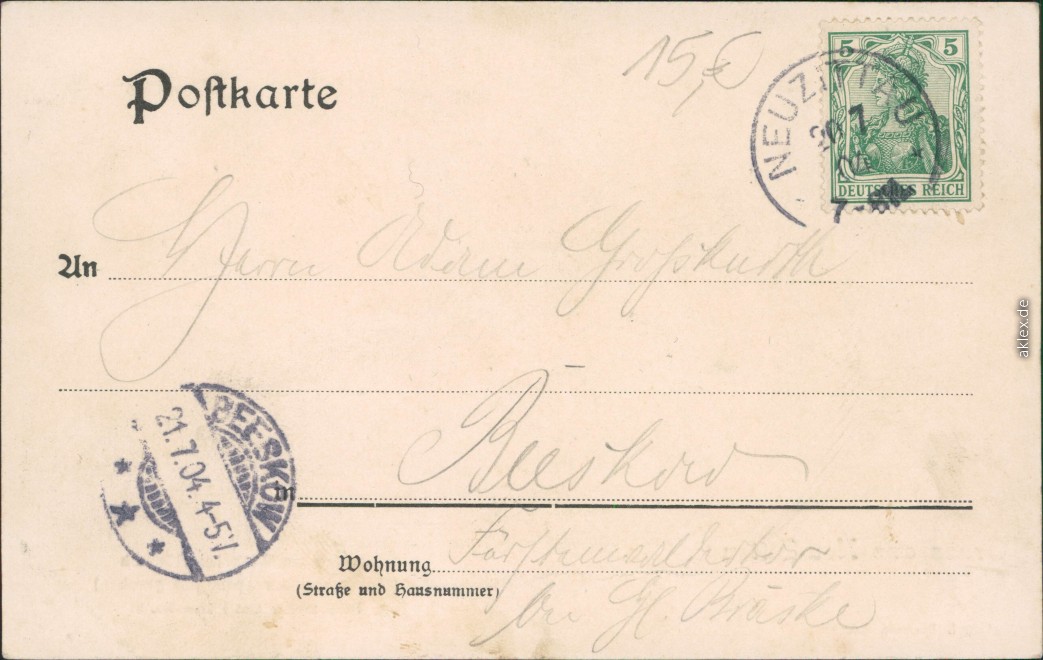 Postkarte
15,€
5 5
DEUTSCHES REICH
NEUZITTAU
20 7
04
7-8N
An Herrn Adam Großkurth
BEESKOW
21.7.04.4-5V.
in Beeskow
Wohnung
(Straße und Hausnummer)
bei
aklex.de